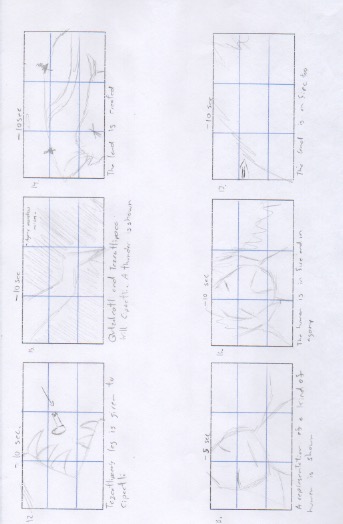 ~10 sec.
12.
leg is given to
cipactli
~10 sec
Quetzalcoatl and
kill Cipactli. A thunder is shown
~10 sec
14.
The land is created
~5 sec
A representation of a kind of
human is shown
~10 sec
16.
The human is in fire and in
agony
~10 sec
17.
The land is on fire too